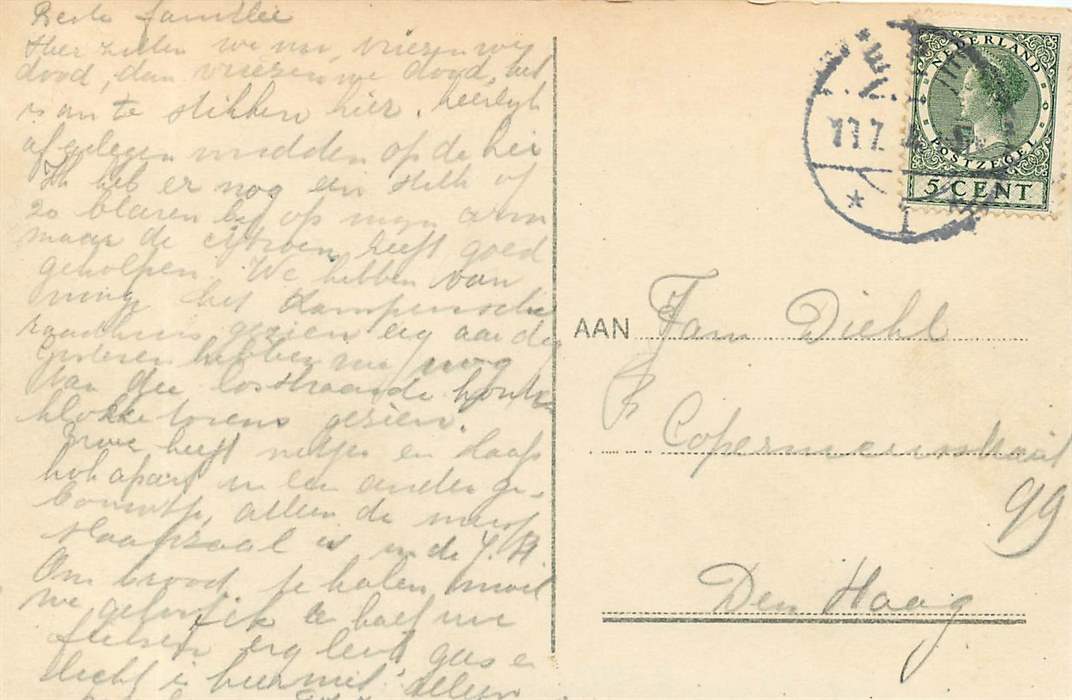 Beste familie
Hier zitten we nu, vriezen we
dood, dan vriezen we dood, het
is om te stikken hier. heerlijk
afgelegen midden op de hei
Ik heb er nog een stuk of
20 blaren bij op mijn arm
maar de citroen heeft goed
geholpen. We hebben van
het Kamper
raadhuis gezien erg aardig
Gisteren hebben we nog
van die losstaande houten
klokketorens gezien.
heeft netjes en slaap
hok apart in een ander ge-
bouwtje, alleen de
slaapzaal is in de J.H.
Om brood te halen moet
we geloof ik a half uur
fietsen erg leuk gas en
licht is hier niet alleen
NEDERLAND
POSTZEGEL
5 CENT
1
AAN Fam Diehl
Copernicusstraat
99
Den Haag